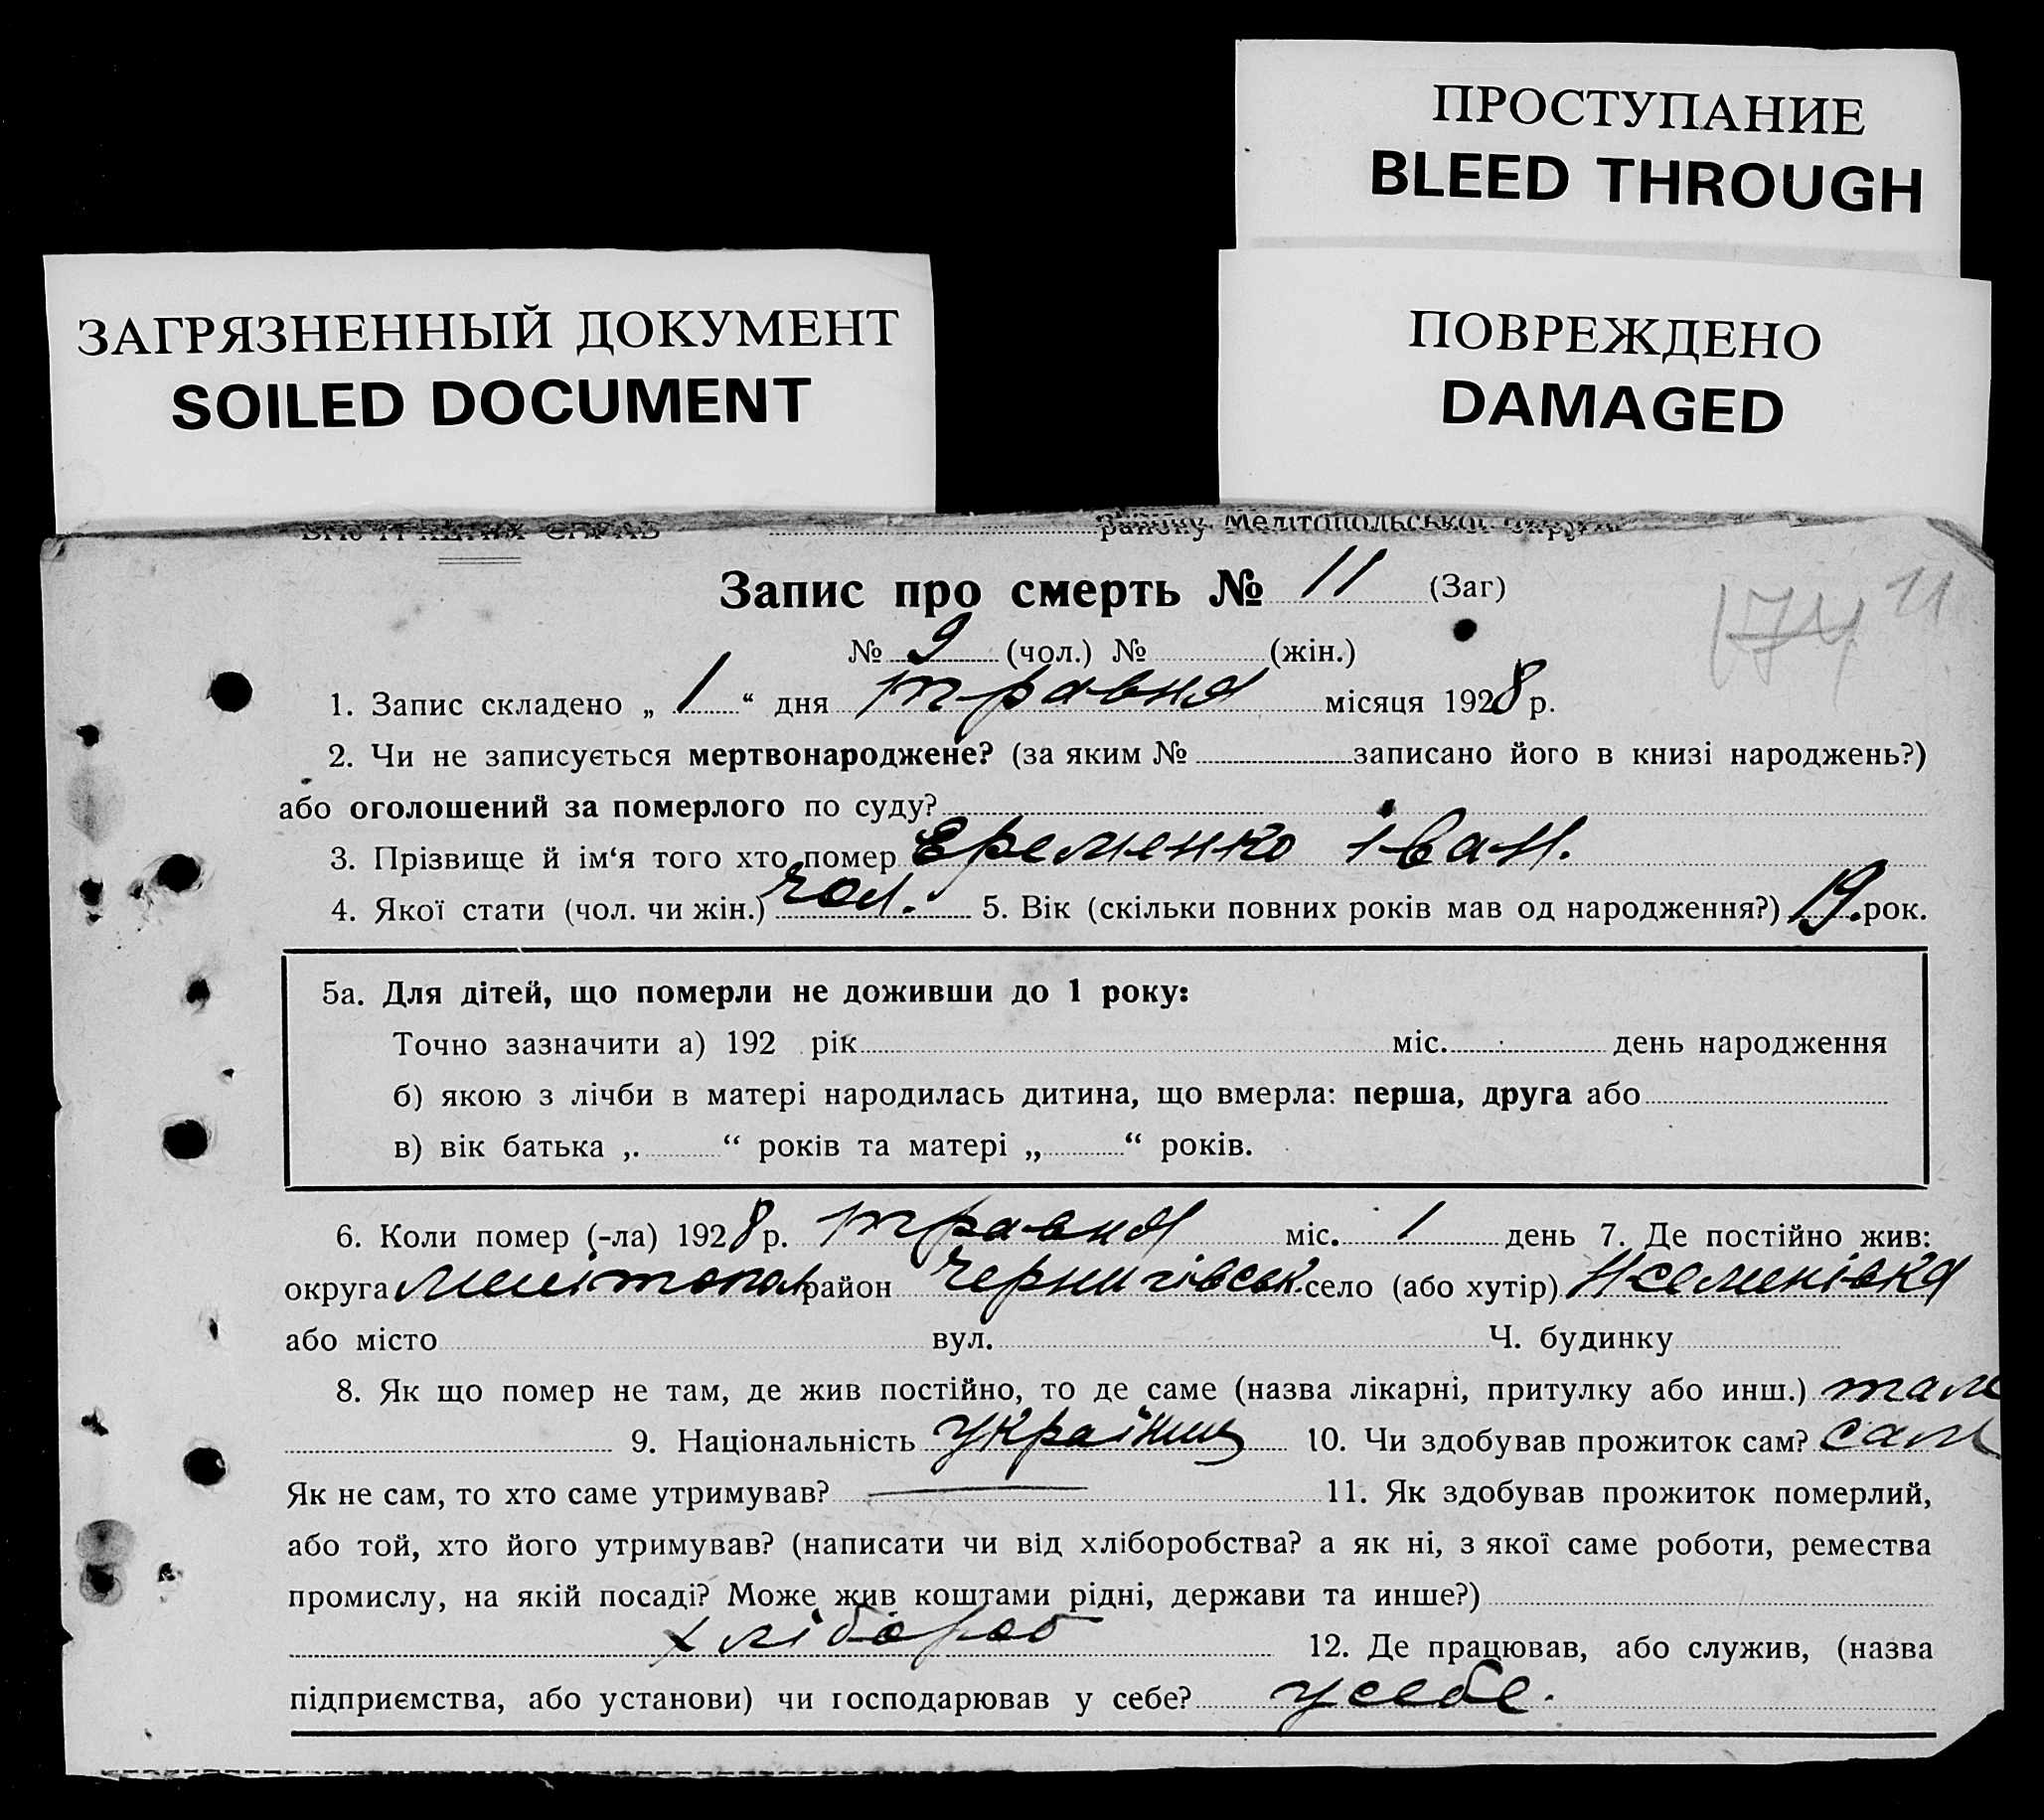 ПРОСТУПАНИЕ
BLEED THROUGH
ЗАГРЯЗНЕННЫЙ ДОКУМЕНТ
SOILED DOCUMENT
ПОВРЕЖДЕНО
DAMAGED
району Мелітопольської округи
Запис про смерть № 11 (Заг)
174 11
№ 9 (чол.) № (жін.)
1. Запис складено „ 1 “ дня травня місяця 1928 р.
2. Чи не записується мертвонароджене? (за яким № записано його в книзі народжень?)
або оголошений за померлого по суду?
3. Прізвище й ім‘я того хто помер Єременко Іван.
4. Якої стати (чол. чи жін.) чол. 5. Вік (скільки повних років мав од народження?) 19. рок.
5а. Для дітей, що померли не доживши до 1 року:
Точно зазначити а) 192 рік міс. день народження
б) якою з лічби в матері народилась дитина, що вмерла: перша, друга або
в) вік батька „ “ років та матері „ “ років.
6. Коли помер (-ла) 1928 р. травня міс. 1 день 7. Де постійно жив:
округа Мелітопол район Чернигівськ. село (або хутір)
або місто вул. Ч. будинку
8. Як що помер не там, де жив постійно, то де саме (назва лікарні, притулку або инш.) там
9. Національність українц 10. Чи здобував прожиток сам? сам
Як не сам, то хто саме утримував? — 11. Як здобував прожиток померлий,
або той, хто його утримував? (написати чи від хліборобства? а як ні, з якої саме роботи, ремества
промислу, на якій посаді? Може жив коштами рідні, держави та инше?)
хлібороб 12. Де працював, або служив, (назва
підприємства, або установи) чи господарював у себе? у себе.